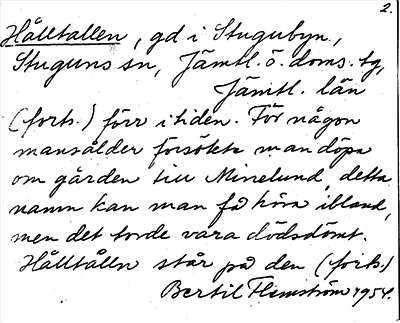 2.
Hålltallen, gd. i Stugubyn.,
Stuguns sn, Jämtl. ö. doms. tg,
Jämtl. län
(forts.) förr i tiden. För någon
mansålder försökte man döpa
om gården till Minelund, detta
namn kan man få höra ibland,
men det torde vara dödsdömt.
Hålltålln står på den (forts.)
Bertil Flemström 1954.